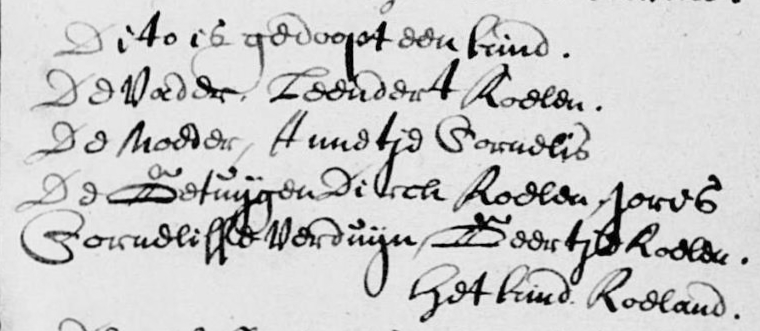 Dito is gedoopt een kind.
De Vader, Leendert Roelen.
De Moeder, Annetje Cornelis
De Getuijgen Dirck Roelen, Joris
Cornelisse Verduijn, Geertje Roelen.
Het kind Roeland.